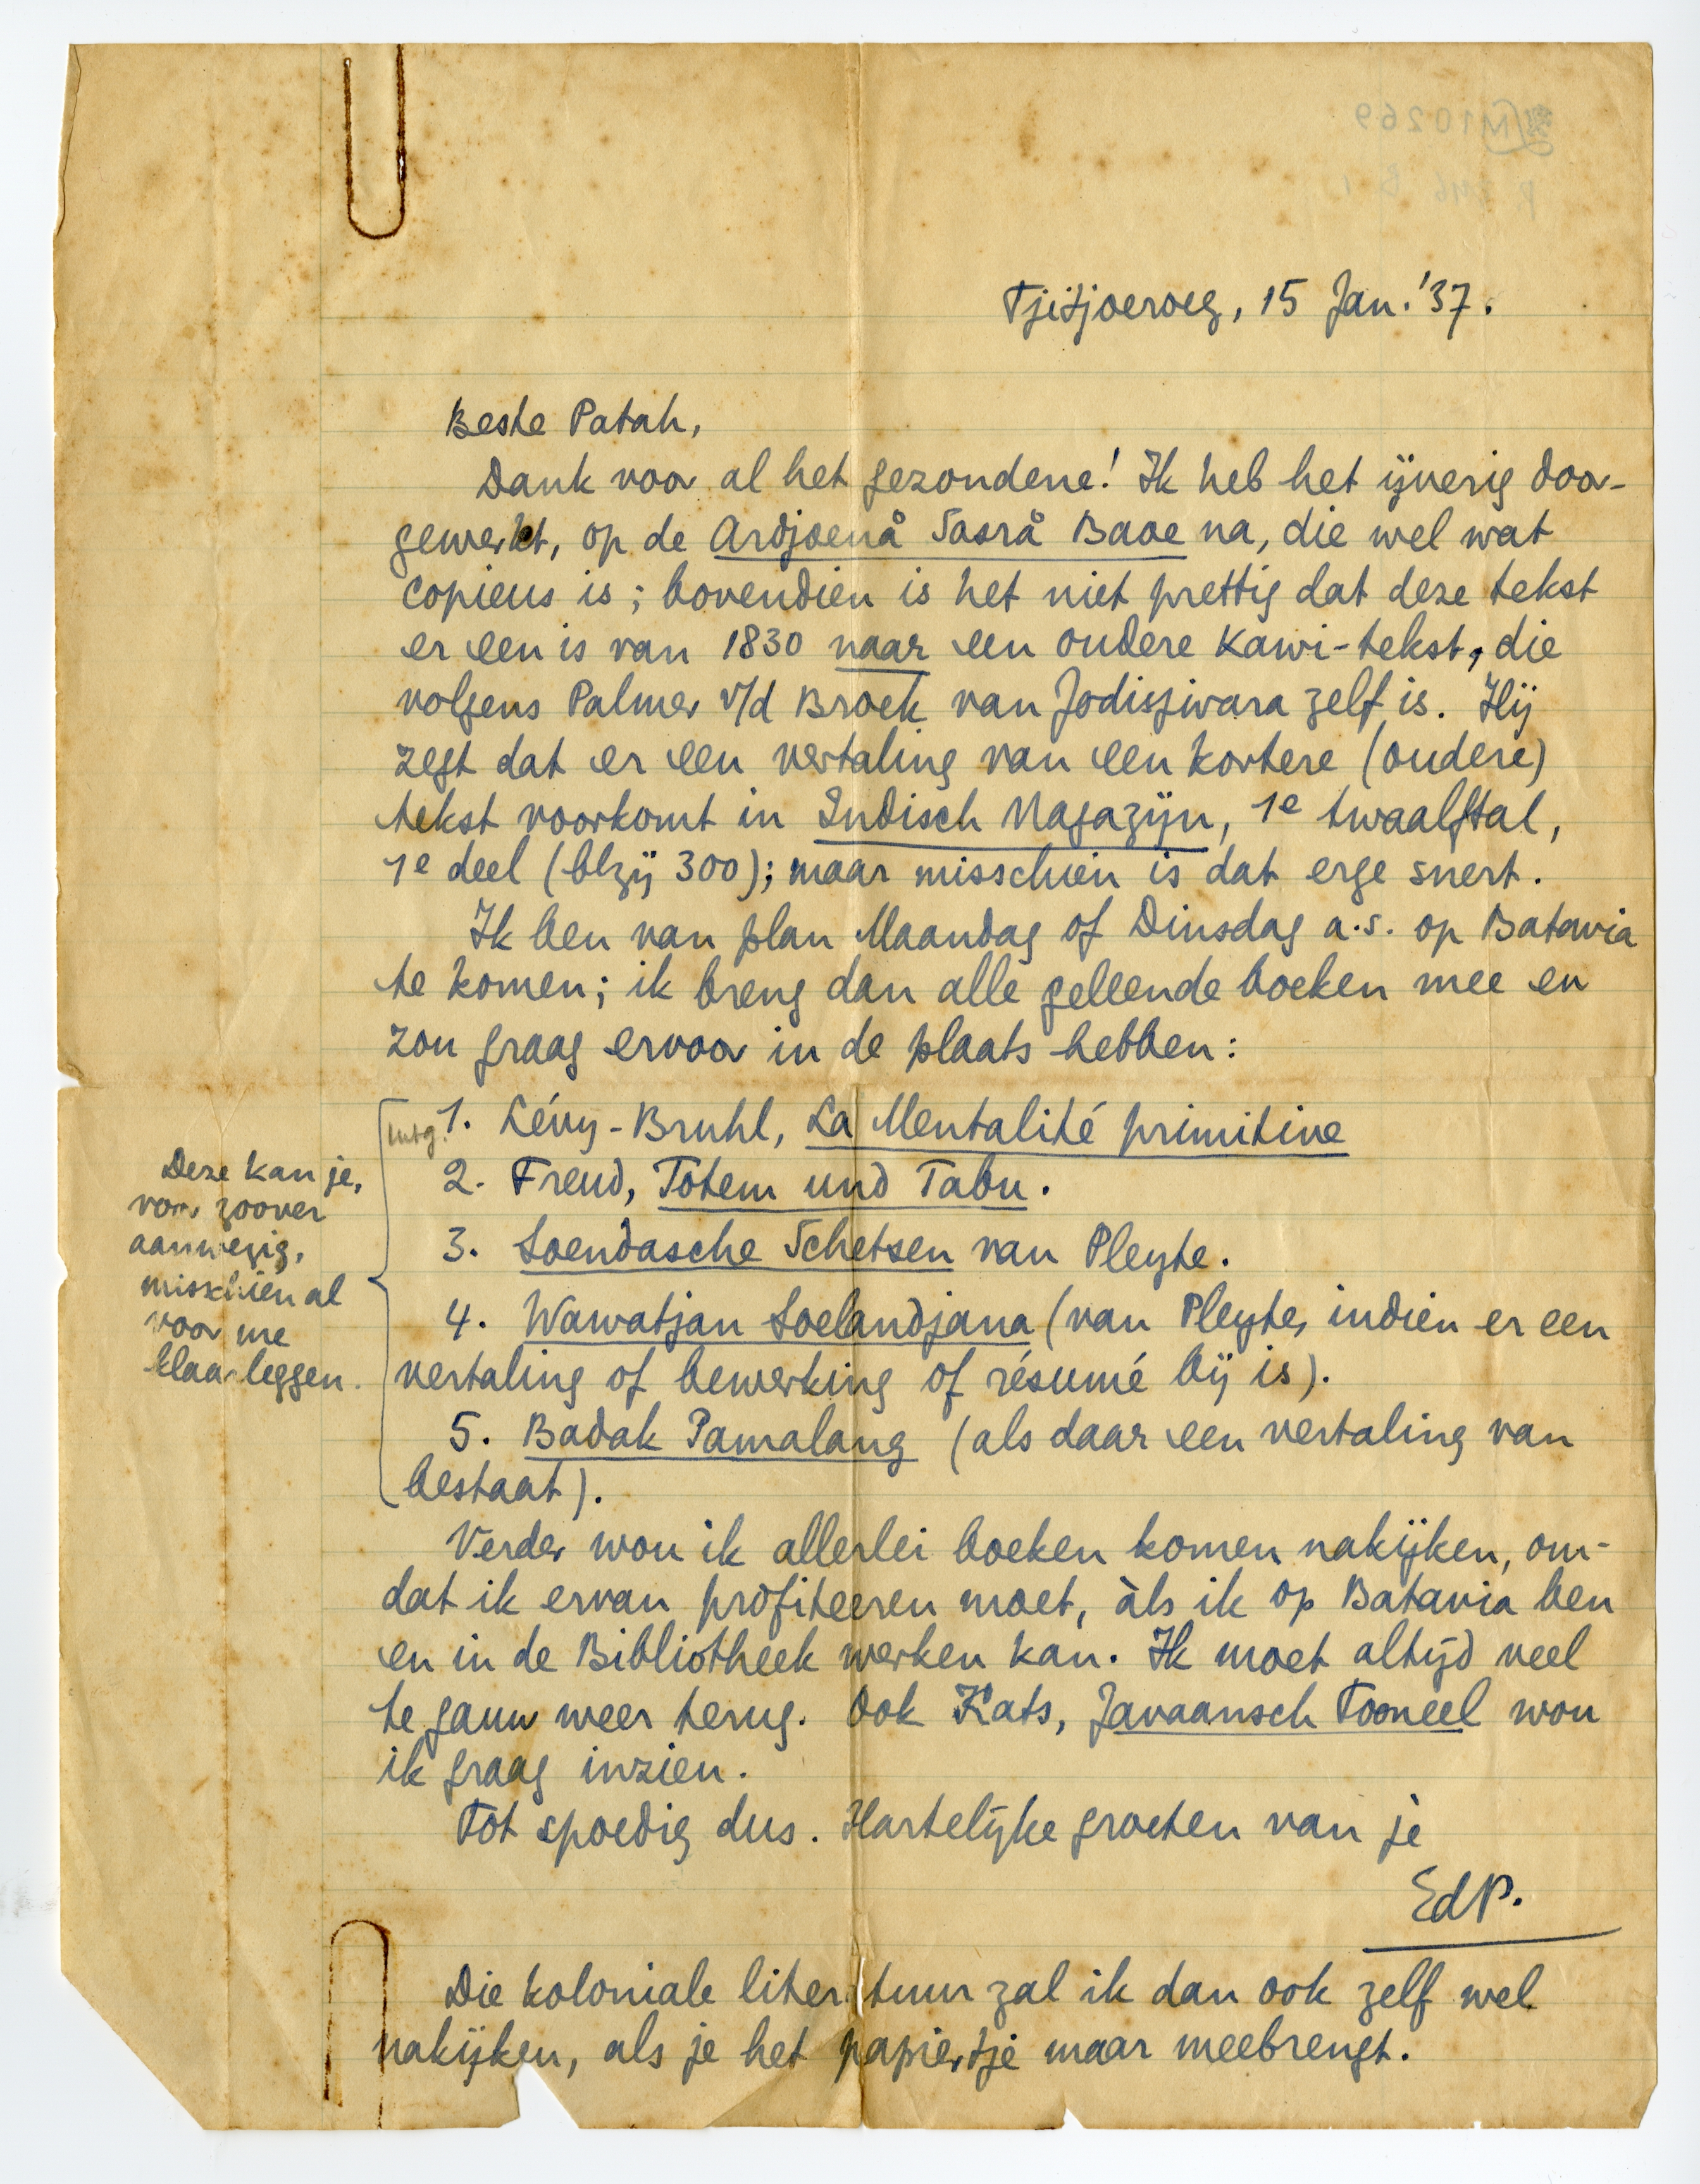 Tjitjoeroeg, 15 Jan. '37.
Beste Patah,
Dank voor al het gezondene! Ik heb het ijverig door-
gewerkt, op de Ardjoenå Sasrå Baoe na, die wel wat
copieus is; bovendien is het niet prettig dat deze tekst
er een is van 1830 naar een oudere Kawi-tekst, die
volgens Palmer v/d Broek van Jodisjwara zelf is. Hij
zegt dat er een vertaling van een kortere (oudere)
tekst voorkomt in Indisch Magazijn, 1e twaalftal,
1e deel (blzij 300); maar misschien is dat erge snert.
Ik ben van plan Maandag of Dinsdag a.s. op Batavia
te komen; ik breng dan alle geleende boeken mee en
zou graag ervoor in de plaats hebben:
1. Lévy-Bruhl, La Mentalité primitive
2. Freud, Totem und Tabu.
3. Soendasche Schetsen van Pleyte.
4. Wawatjan Soelandjana (van Pleyte, indien er een
vertaling of bewerking of résumé bij is).
5. Badak Pamalang (als daar een vertaling van
bestaat).
Deze kan je,
voor zoover
aanwezig,
misschien al
voor me
klaarleggen.
Verder wou ik allerlei boeken komen nakijken, om-
dat ik ervan profiteeren moet, àls ik op Batavia ben
en in de Bibliotheek werken kan. Ik moet altijd veel
te gauw weer terug. Ook Kats, Javaansch Tooneel wou
ik graag inzien.
Tot spoedig dus. Hartelijke groeten van je
EdP.
Die koloniale literatuur zal ik dan ook zelf wel
nakijken, als je het papiertje maar meebrengt.